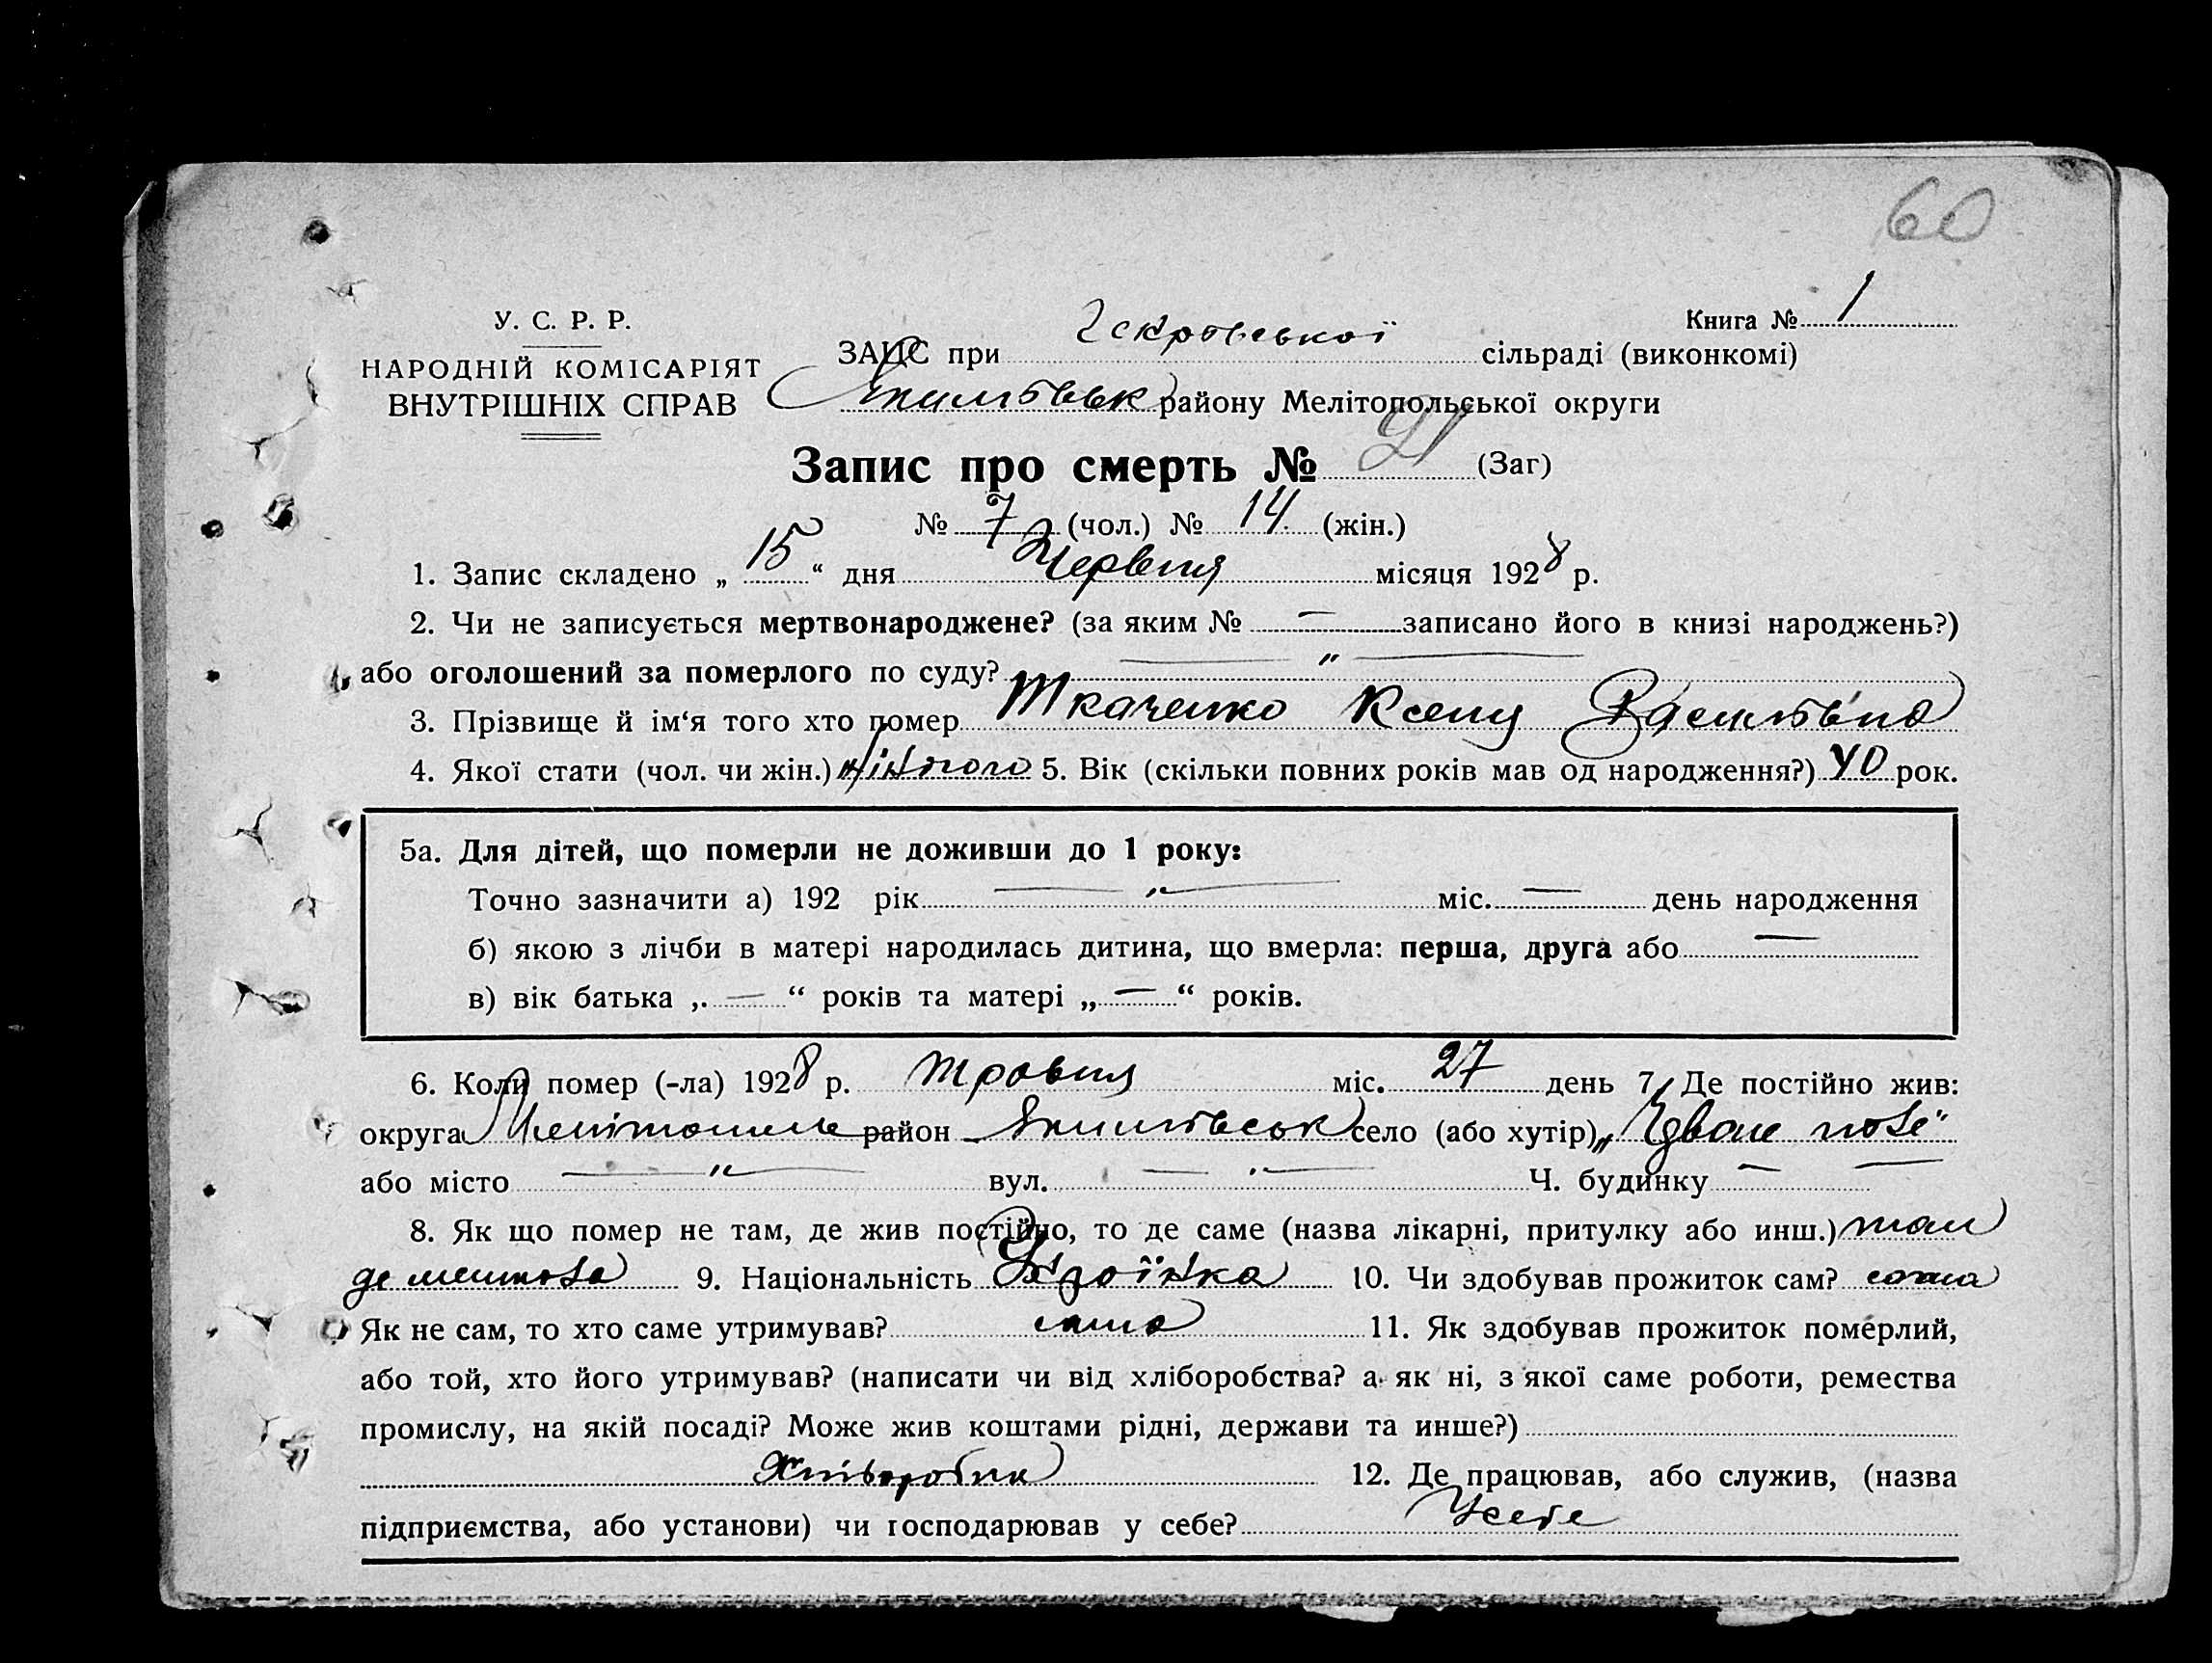 60
У. С. Р. Р.
НАРОДНІЙ КОМІСАРІЯТ
ВНУТРІШНІХ СПРАВ
Книга № 1
ЗАЦС при Іскровської сільраді (виконкомі)
Якимівськ району Мелітопольської округи
Запис про смерть № 21 (Заг)
№ 7 (чол.) № 14 (жін.)
1. Запис складено „ 15 “ дня Червня місяця 1928 р.
2. Чи не записується мертвонароджене? (за яким № — записано його в книзі народжень?)
або оголошений за померлого по суду? — " —
3. Прізвище й ім‘я того хто помер Ткаченко Ксеня Василівна
4. Якої стати (чол. чи жін.) жіночого 5. Вік (скільки повних років мав од народження?) 40 рок.
5а. Для дітей, що померли не доживши до 1 року:
Точно зазначити а) 192 рік — " — міс. — день народження
б) якою з лічби в матері народилась дитина, що вмерла: перша, друга або —
в) вік батька „ — “ років та матері „ — “ років.
6. Коли помер (-ла) 1928 р. травня міс. 27 день 7. Де постійно жив:
округа Мелітополь район Якимівськ село (або хутір) „ поле"
або місто — " — вул. — " — Ч. будинку — —
8. Як що помер не там, де жив постійно, то де саме (назва лікарні, притулку або инш.) там
де мешкала 9. Національність Українка 10. Чи здобував прожиток сам? сама
Як не сам, то хто саме утримував? сама 11. Як здобував прожиток померлий,
або той, хто його утримував? (написати чи від хліборобства? а як ні, з якої саме роботи, ремества
промислу, на якій посаді? Може жив коштами рідні, держави та инше?)
12. Де працював, або служив, (назва
підприємства, або установи) чи господарював у себе? У себе